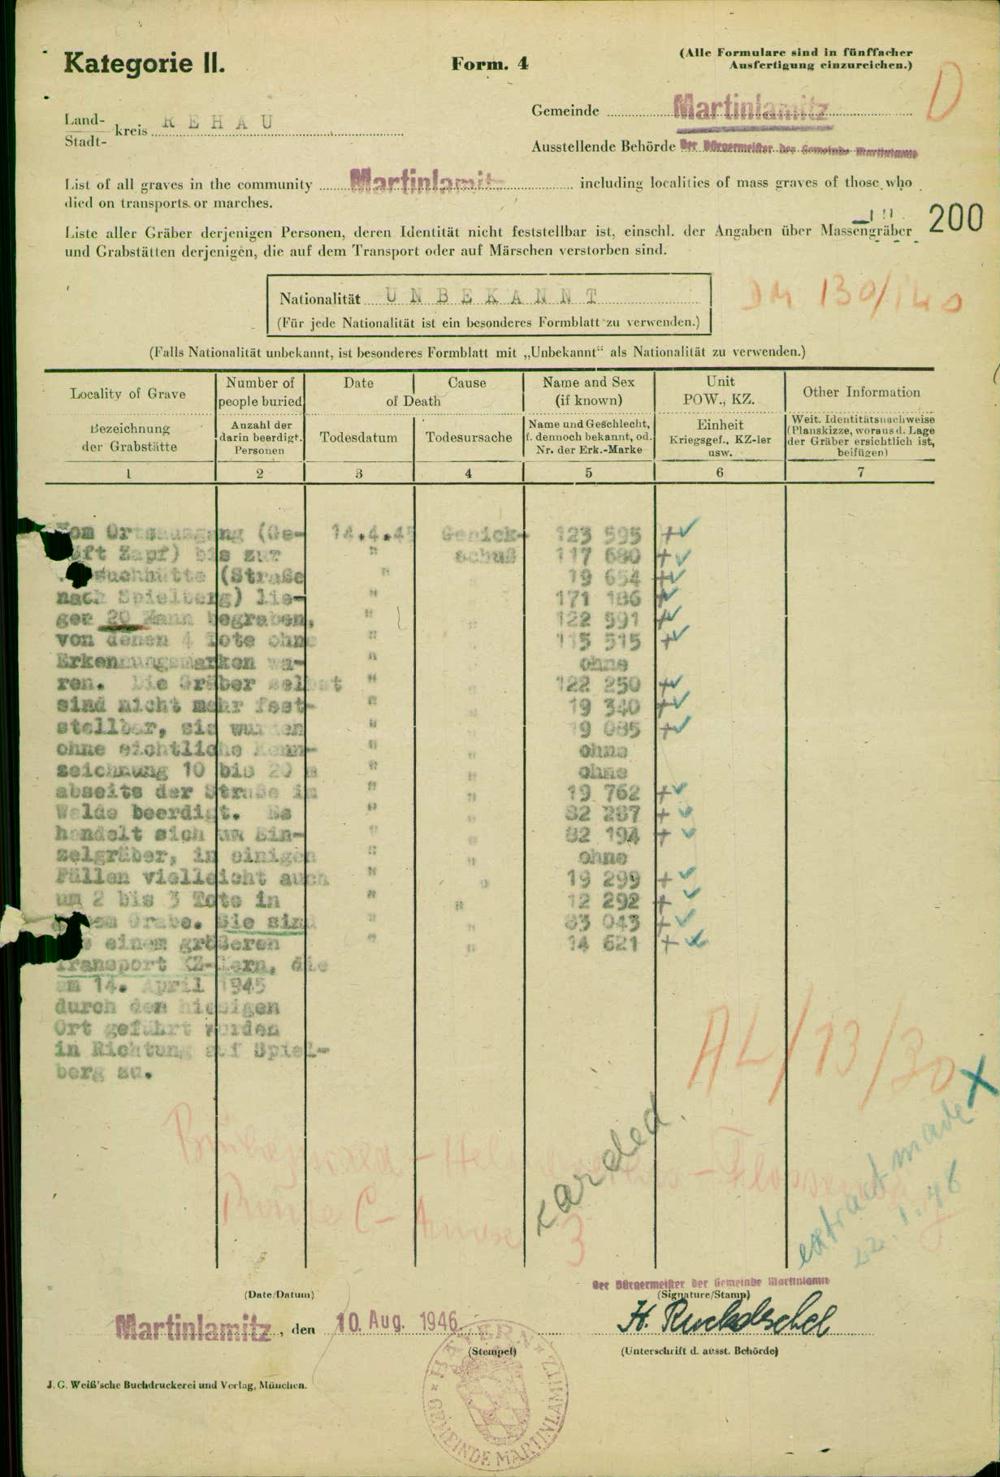 Kategorie II.
Form. 4
(Alle Formulare sind in fünffacher
Ausfertigung einzureichen.)
D
Land-
Stadt-
kreis REHAU
Gemeinde Martinlamitz
Ausstellende Behörde Der Bürgermeister der Gemeinde Martinlamitz
List of all graves in the community Martinlamitz including localities of mass graves of those who
died on transports or marches.
200
Liste aller Gräber derjenigen Personen, deren Identität nicht feststellbar ist, einschl. der Angaben über Massengräber
und Grabstätten derjenigen, die auf dem Transport oder auf Märschen verstorben sind.
Nationalität UNBEKANNT
(Für jede Nationalität ist ein besonderes Formblatt zu verwenden.)
DM 130/140
(Falls Nationalität unbekannt, ist besonderes Formblatt mit „Unbekannt" als Nationalität zu verwenden.)
Locality of Grave
Bezeichnung
der Grabstätte
Number of
people buried
Anzahl der
darin beerdigt.
Personen
Date
Cause
of Death
Todesdatum
Todesursache
Name and Sex
(if known)
Name und Geschlecht,
f. dennoch bekannt, od.
Nr. der Erk.-Marke
Unit
POW., KZ.
Einheit
Kriegsgef., KZ-ler
usw.
Other Information
Weit. Identitätsnachweise
(Planskizze, woraus d. Lage
der Gräber ersichtlich ist,
beifügen)
1 2 3 4 5 6 7
Vom Ortsausgang (Ge- 14.4.45 Genick- 123 595 +
Zapf) bis zur " schuß 117 680 +
(Straße " 19 654 +
nach Spielberg) lie- " 171 186 +
gen 20 Mann begraben, " 122 591 +
von denen 4 Tote ohne " 115 515 +
Erkennungsmarken wa- " ohne
ren. Die Gräber selbst " 122 250 +
sind nicht mehr fest- " 19 340 +
stellbar, sie wurden " 9 085 +
ohne sichtliche Kenn- " ohne
zeichnung 10 bis 20 m " ohne
abseits der Straße im " 19 762 +
Walde beerdigt. Es " 82 287 +
handelt sich um Ein- " 82 194 +
zelgräber, in einigen " ohne
Fällen vielleicht auch " 19 299 +
um 2 bis 3 Tote in " 12 292 +
Grabe. Sie sind " 83 043 +
einem größeren " 14 621 +
Transport KZ-lern, die
am 14. April 1945
durch den hiesigen
Ort geführt worden
in Richtung auf Spiel-
berg zu.
AL/13/30
X
carded.
3
extract made
22.1.48
(Date/Datum)
Martinlamitz, den 10. Aug. 1946
(Stempel)
BAYERN
GEMEINDE MARTINLAMITZ
Der Bürgermeister der Gemeinde Martinlamitz
(Signature/Stamp)
H. Ruckdeschel
(Unterschrift d. ausst. Behörde)
J. G. Weiß'sche Buchdruckerei und Verlag, München.